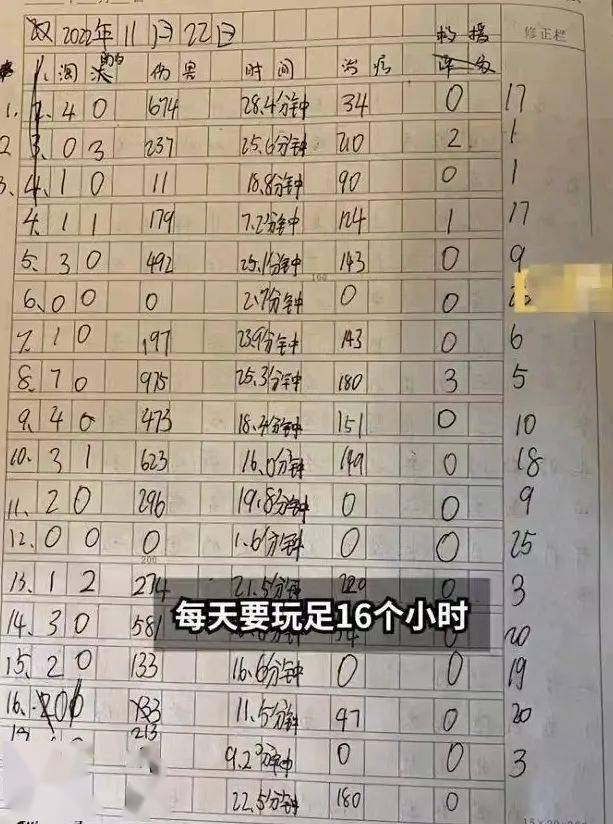 双 2022年11月22日 救援 修正栏
淘汰 助攻 伤害 时间 治疗
1. 4 0 674 28.4分钟 34 0 17
2. 0 3 237 25.6分钟 210 2 1
3. 1 0 11 18.8分钟 90 0 1
4. 1 1 179 7.2分钟 124 1 17
5. 3 0 492 25.1分钟 143 0 9
6. 0 0 0 2.7分钟 0 0
7. 1 0 197 23.9分钟 143 0 6
8. 7 0 975 25.3分钟 180 3 5
9. 4 0 473 18.4分钟 151 0 10
10. 3 1 623 16.0分钟 199 0 18
11. 2 0 296 19.8分钟 0 0 9
12. 0 0 0 1.6分钟 0 0 25
200
13. 1 2 274 21.5分钟 0 3
每天要玩足16个小时
14. 3 0 581 0 20
15. 2 0 133 16.6分钟 0 0 19
16. 11.5分钟 47 0 20
213
9.2分钟 0 0 3
22.5分钟 180 0